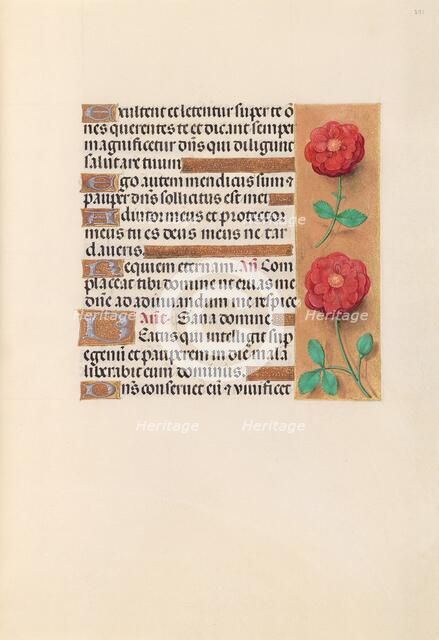 Exultent et letentur super te o
nes querentes te et dicant semper
magnificetur dn̄s qui diligunt
salutare tuum
Ego autem mendicus sum ⁊
pauper dn̄s sollicitus est mei
Adiutor meus et protector
meus tu es deus meus ne tar
daueris.
Requiem eternam. An̄. Com
placeat tibi domine ut eruas me
dn̄e ad adiuuandum me respice
An̄e. Sana domine
Beatus qui intelligit sup
egenū et pauperem in die mala
liberabit eum dominus.
Dn̄s conseruet eū ⁊ viuificet
Heritage
Heritage
Heritage
Heritage
Heritage
Heritage